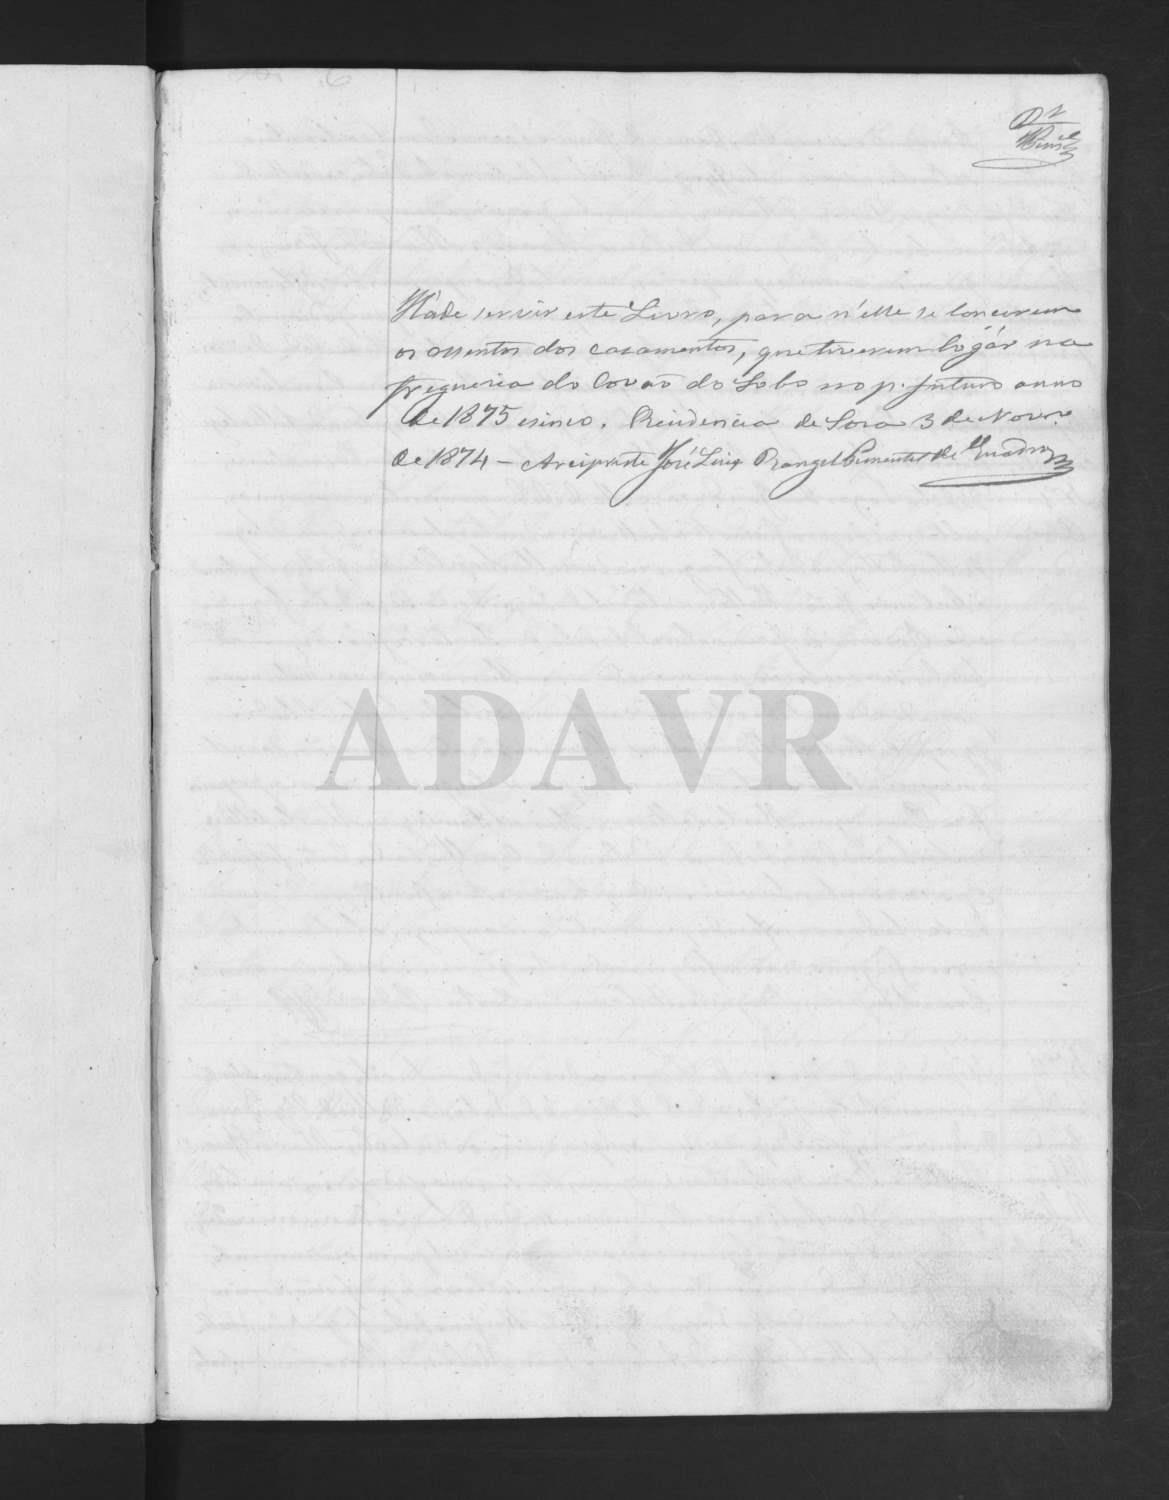 Hade servir este Livro, para n'elle se lancarem
os assentos dos casamentos, que tiverem logár na
freguesia do Covaõ do Lobo no p. futuro anno
de 1875 e sinco. Residencia de Soza 3 de Novbro
de 1874 – Arcipreste José Luiz Rangel Pimentel de Quadros
ADAVR